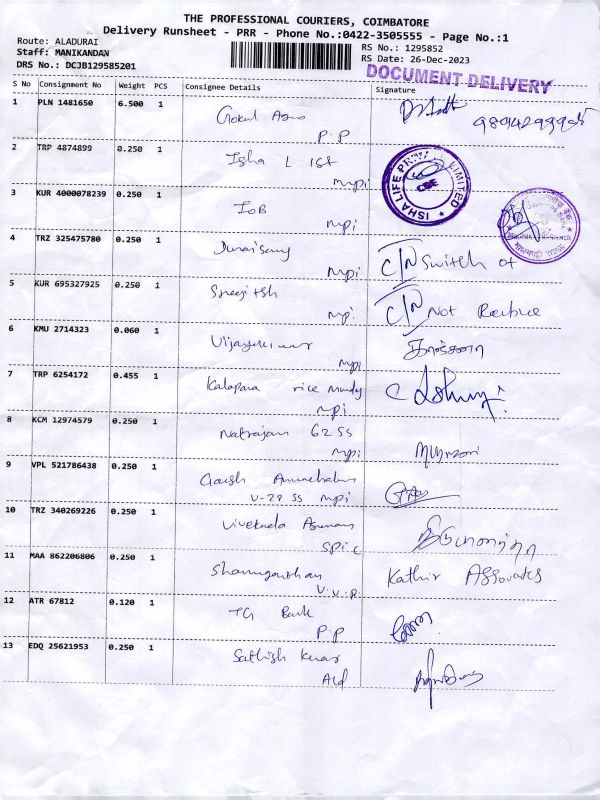 THE PROFESSIONAL COURIERS, COIMBATORE
Delivery Runsheet - PRR - Phone No.:0422-3505555 - Page No.:1
Route: ALADURAI
Staff: MANIKANDAN
DRS No.: DCJB129585201
RS No.: 1295852
RS Date: 26-Dec-2023
DOCUMENT DELIVERY
S No Consignment No Weight PCS Consignee Details Signature
1 PLN 1481650 6.500 1 Gokul
P.P
2 TRP 4874899 0.250 1 Isha L
mpi
ISHA LIFE PRIVATE LIMITED
CBE
3 KUR 4000078239 0.250 1 IOB
mpi
4 TRZ 325475780 0.250 1 Duraisamy C/N Switch of
mpi
5 KUR 695327925 0.250 1 Sreejitsh C/N Not
mpi.
6 KMU 2714323 0.060 1 Vijayakumar
mpi
7 TRP 6254172 0.455 1 Kalapara rice mundy
mpi
8 KCM 12974579 0.250 1 Natrajan G2 SS
mpi
9 VPL 521786438 0.250 1
V-29 SS mpi
10 TRZ 340269226 0.250 1
11 MAA 862206806 0.250 1 Kathir Assovates
V.V.P.
12 ATR 67812 0.120 1 TG Bank
P.P
13 EDQ 25621953 0.250 1 Sathish Kumar
Ald